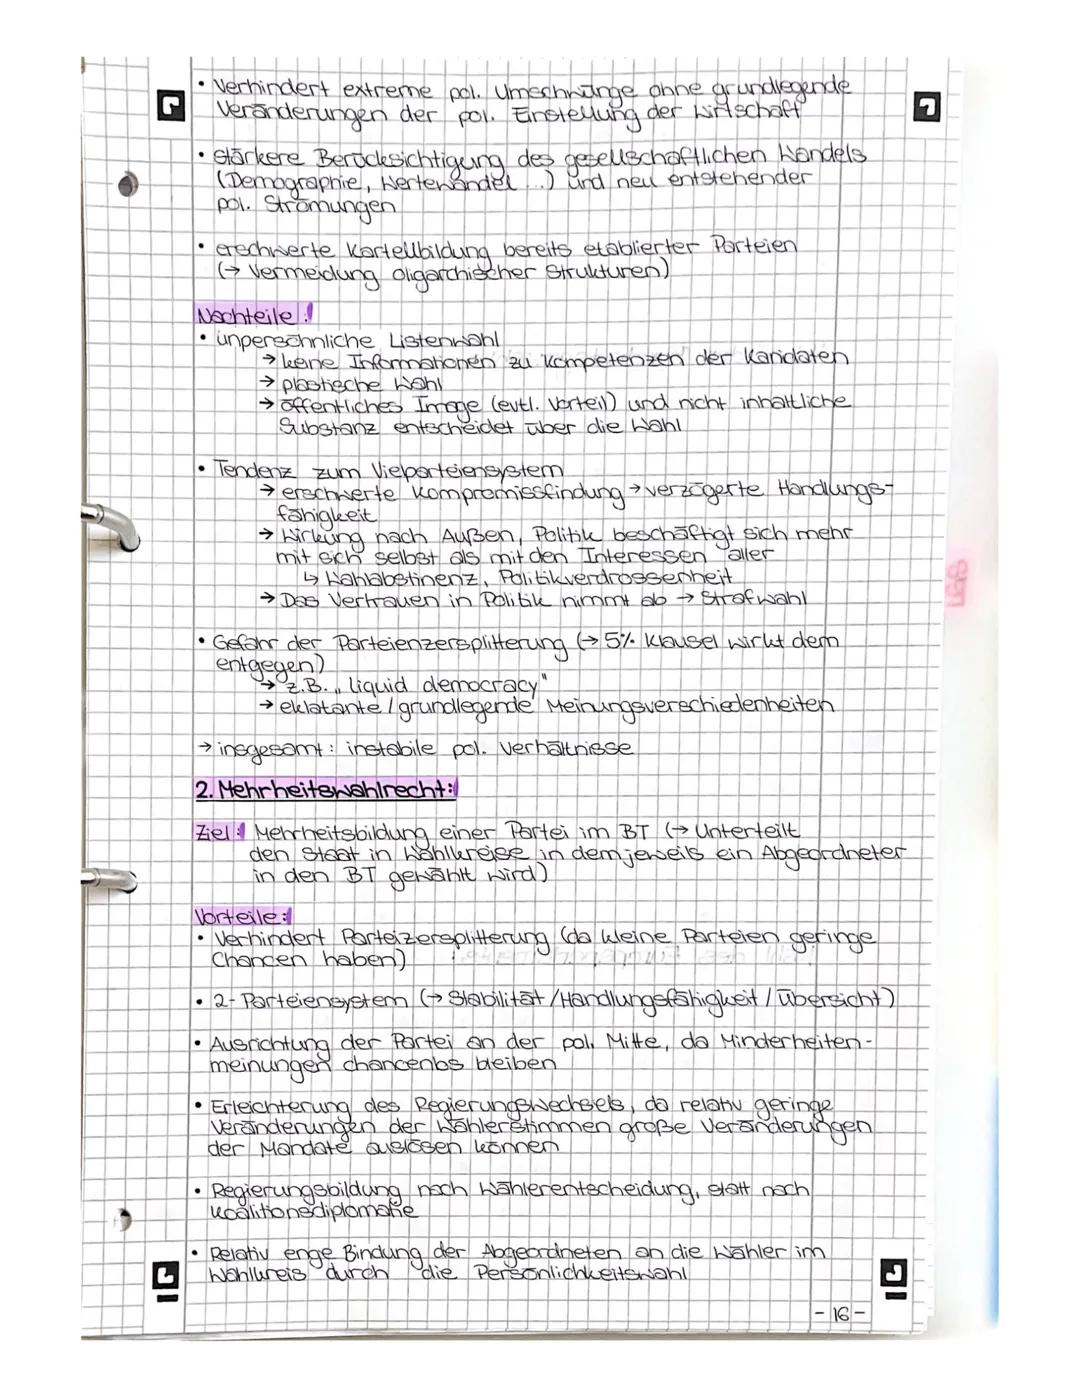 • Verhindert extreme pol. Umschwünge ohne grundlegende
Veränderungen der pol. Einstellung der Wirtschaft
• stärkere Berücksichtigung des gesellschaftlichen Wandels
(Demographie, Wertewandel ...) und neu entstehender
pol. Strömungen
• erschwerte Kartellbildung bereits etablierter Parteien
(→ Vermeidung oligarchischer Strukturen)
Nachteile:
• unpersöhnliche Listenwahl
→ keine Informationen zu Kompetenzen der Kandidaten
→ plastische Wahl
→ öffentliches Image (evtl. Vorteil) und nicht inhaltliche
Substanz entscheidet über die Wahl
• Tendenz zum Vielparteiensystem
→ erschwerte Kompromissfindung → verzögerte Handlungs-
fähigkeit
→ Wirkung nach Außen, Politik beschäftigt sich mehr
mit sich selbst als mit den Interessen aller
↳ Wahlabstinenz, Politikverdrossenheit
→ Das Vertrauen in Politik nimmt ab → Strafwahl
• Gefahr der Parteienzersplitterung (→ 5% Klausel wirkt dem
entgegen)
→ z.B. „liquid democracy"
→ eklatante / grundlegende Meinungsverschiedenheiten
→ insgesamt: instabile pol. Verhältnisse
2. Mehrheitswahlrecht:
Ziel: Mehrheitsbildung einer Partei im BT (→ Unterteilt
den Staat in Wahlkreise in dem jeweils ein Abgeordneter
in den BT gewählt wird)
Vorteile:
• Verhindert Parteizersplitterung (da kleine Parteien geringe
Chancen haben)
• 2-Parteiensystem (→ Stabilität / Handlungsfähigkeit / Übersicht)
• Ausrichtung der Partei an der pol. Mitte, da Minderheiten-
meinungen chancenlos bleiben
• Erleichterung des Regierungswechsels, da relativ geringe
Veränderungen der Wählerstimmen große Veränderungen
der Mandate auslösen können
• Regierungsbildung nach Wählerentscheidung, statt nach
Koalitionsdiplomatie
• Relativ enge Bindung der Abgeordneten an die Wähler im
Wahlkreis durch die Persönlichkeitswahl
- 16 -